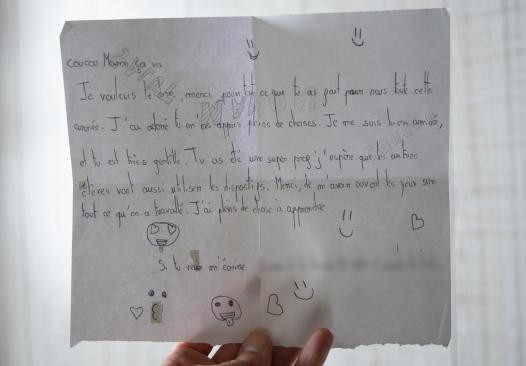 coucou Manon, ça va
Je voulais te dire, merci, pour tout ce que tu as fait pour nous toute cette
année. J'ai adoré tu m'as appris pleins de choses. Je me suis bien amusé,
et tu est très gentille. Tu as été une super prof j'espère que les autres
élèves vont aussi utiliser les dispositifs. Merci, de m'avoir ouvert les yeux sur
tout ce qu'on a travaillé. J'ai pleins de chose à apprendre
Si tu veux m'écrire